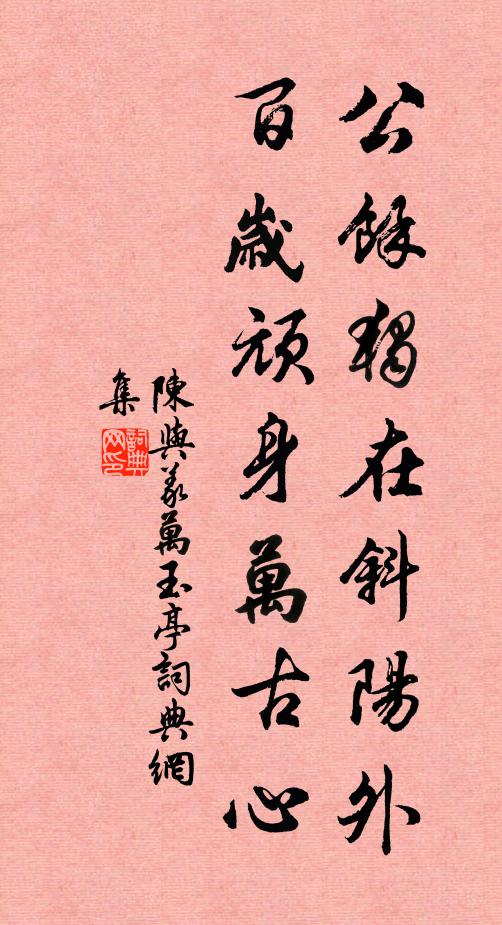 公餘獨在斜陽外
百歲頑身萬古心
陳與義萬玉亭詞典網
集
詞典
网印